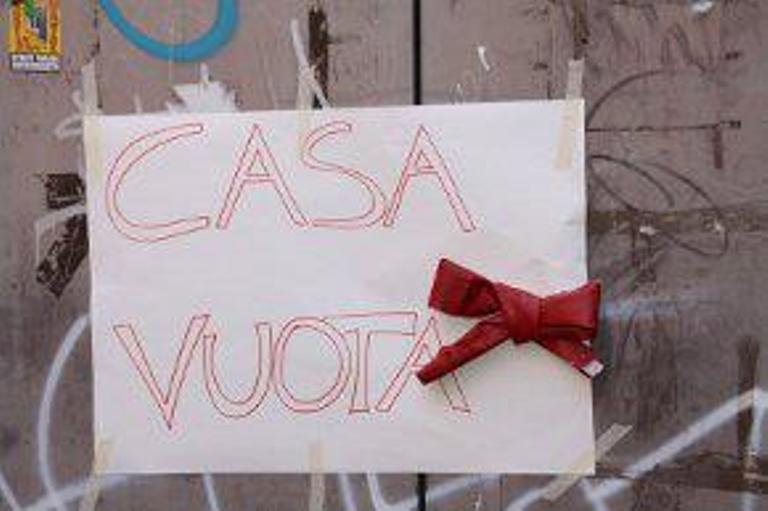 CASA
VUOTA